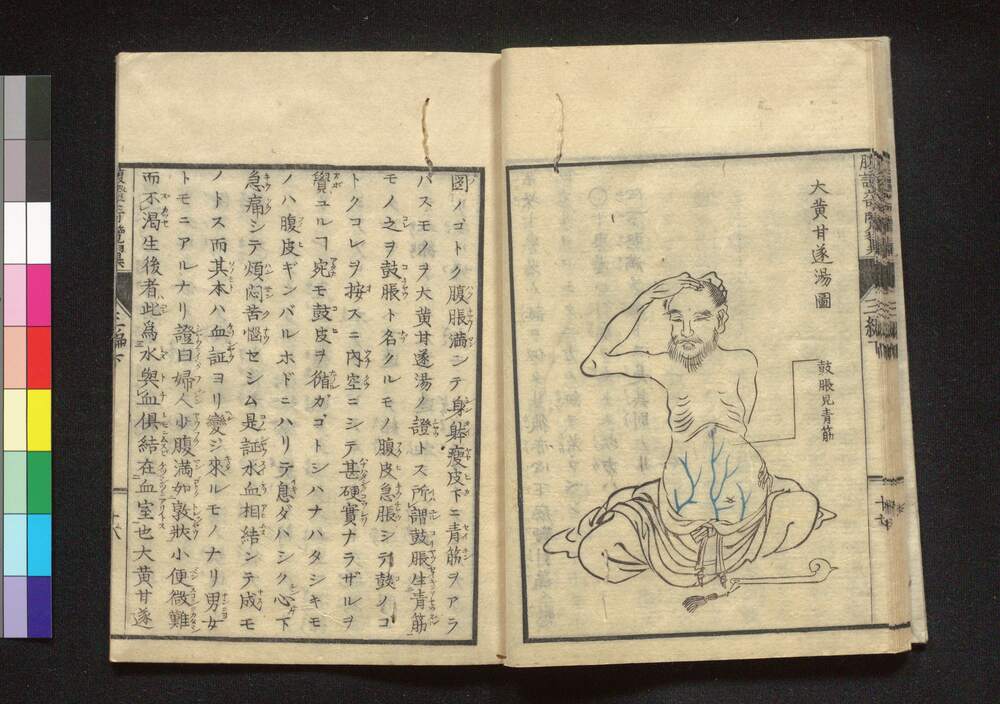 大黄甘遂湯圖
鼓脹見青筋
圖ノゴトク腹脹満シテ身躰瘦皮下ニ青筋ヲアラ
ハスモノヲ大黄甘遂湯ノ證トス所謂鼓脹生青筋
モノ之ヲ鼓脹ト名クルモノ腹皮急脹シテ鼓ノコ
トクコレヲ按スニ内空ニシテ甚硬實ナラザルヲ
覺ユルヿ宛モ鼓皮ヲ循ガゴトシハナハタシキモ
ノハ腹皮ギンバルホドニハリテ息ダハシク心下
急痛シテ煩悶苦惱セシム是証水血相結シテ成モ
ノトス而其本ハ血証ヨリ變ジ來ルモノナリ男女
トモニアルナリ證曰婦人少腹満如敦狀小便微難
而不渇生後者此為水與血俱結在血室也大黄甘遂